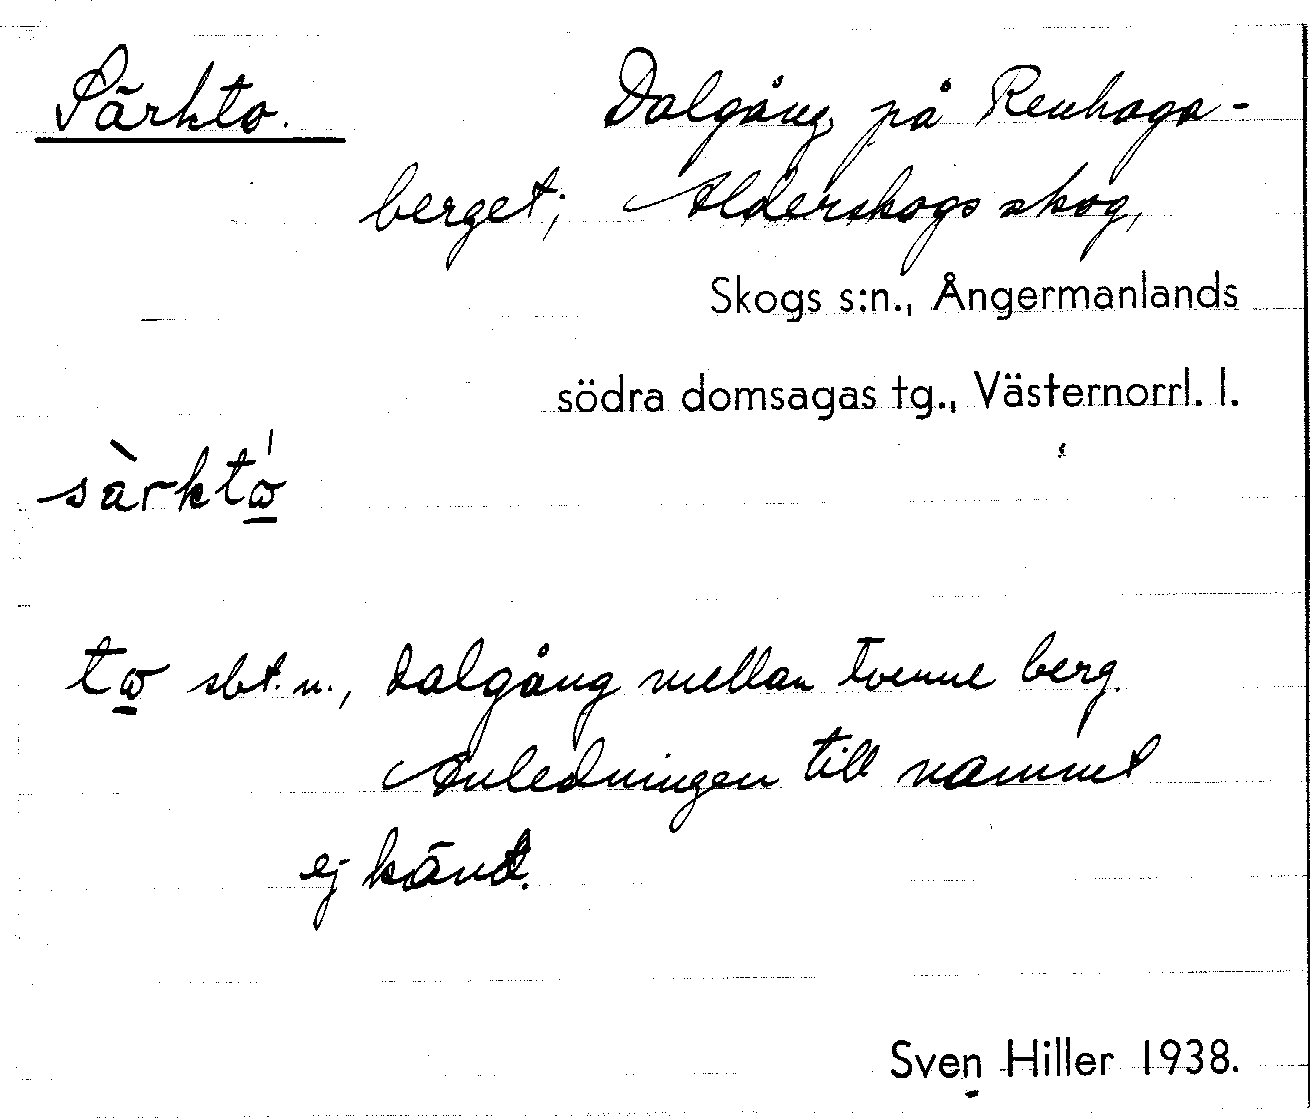 Särkto. Dalgång på Renhaga-
berget; Alderskogs skog,
Skogs s:n., Ångermanlands
södra domsagas tg., Västernorrl. l.
sàrktó̲
to̲ sbt. n., dalgång mellan tvenne berg.
Anledningen till namnet
ej känd.
Sven Hiller 1938.